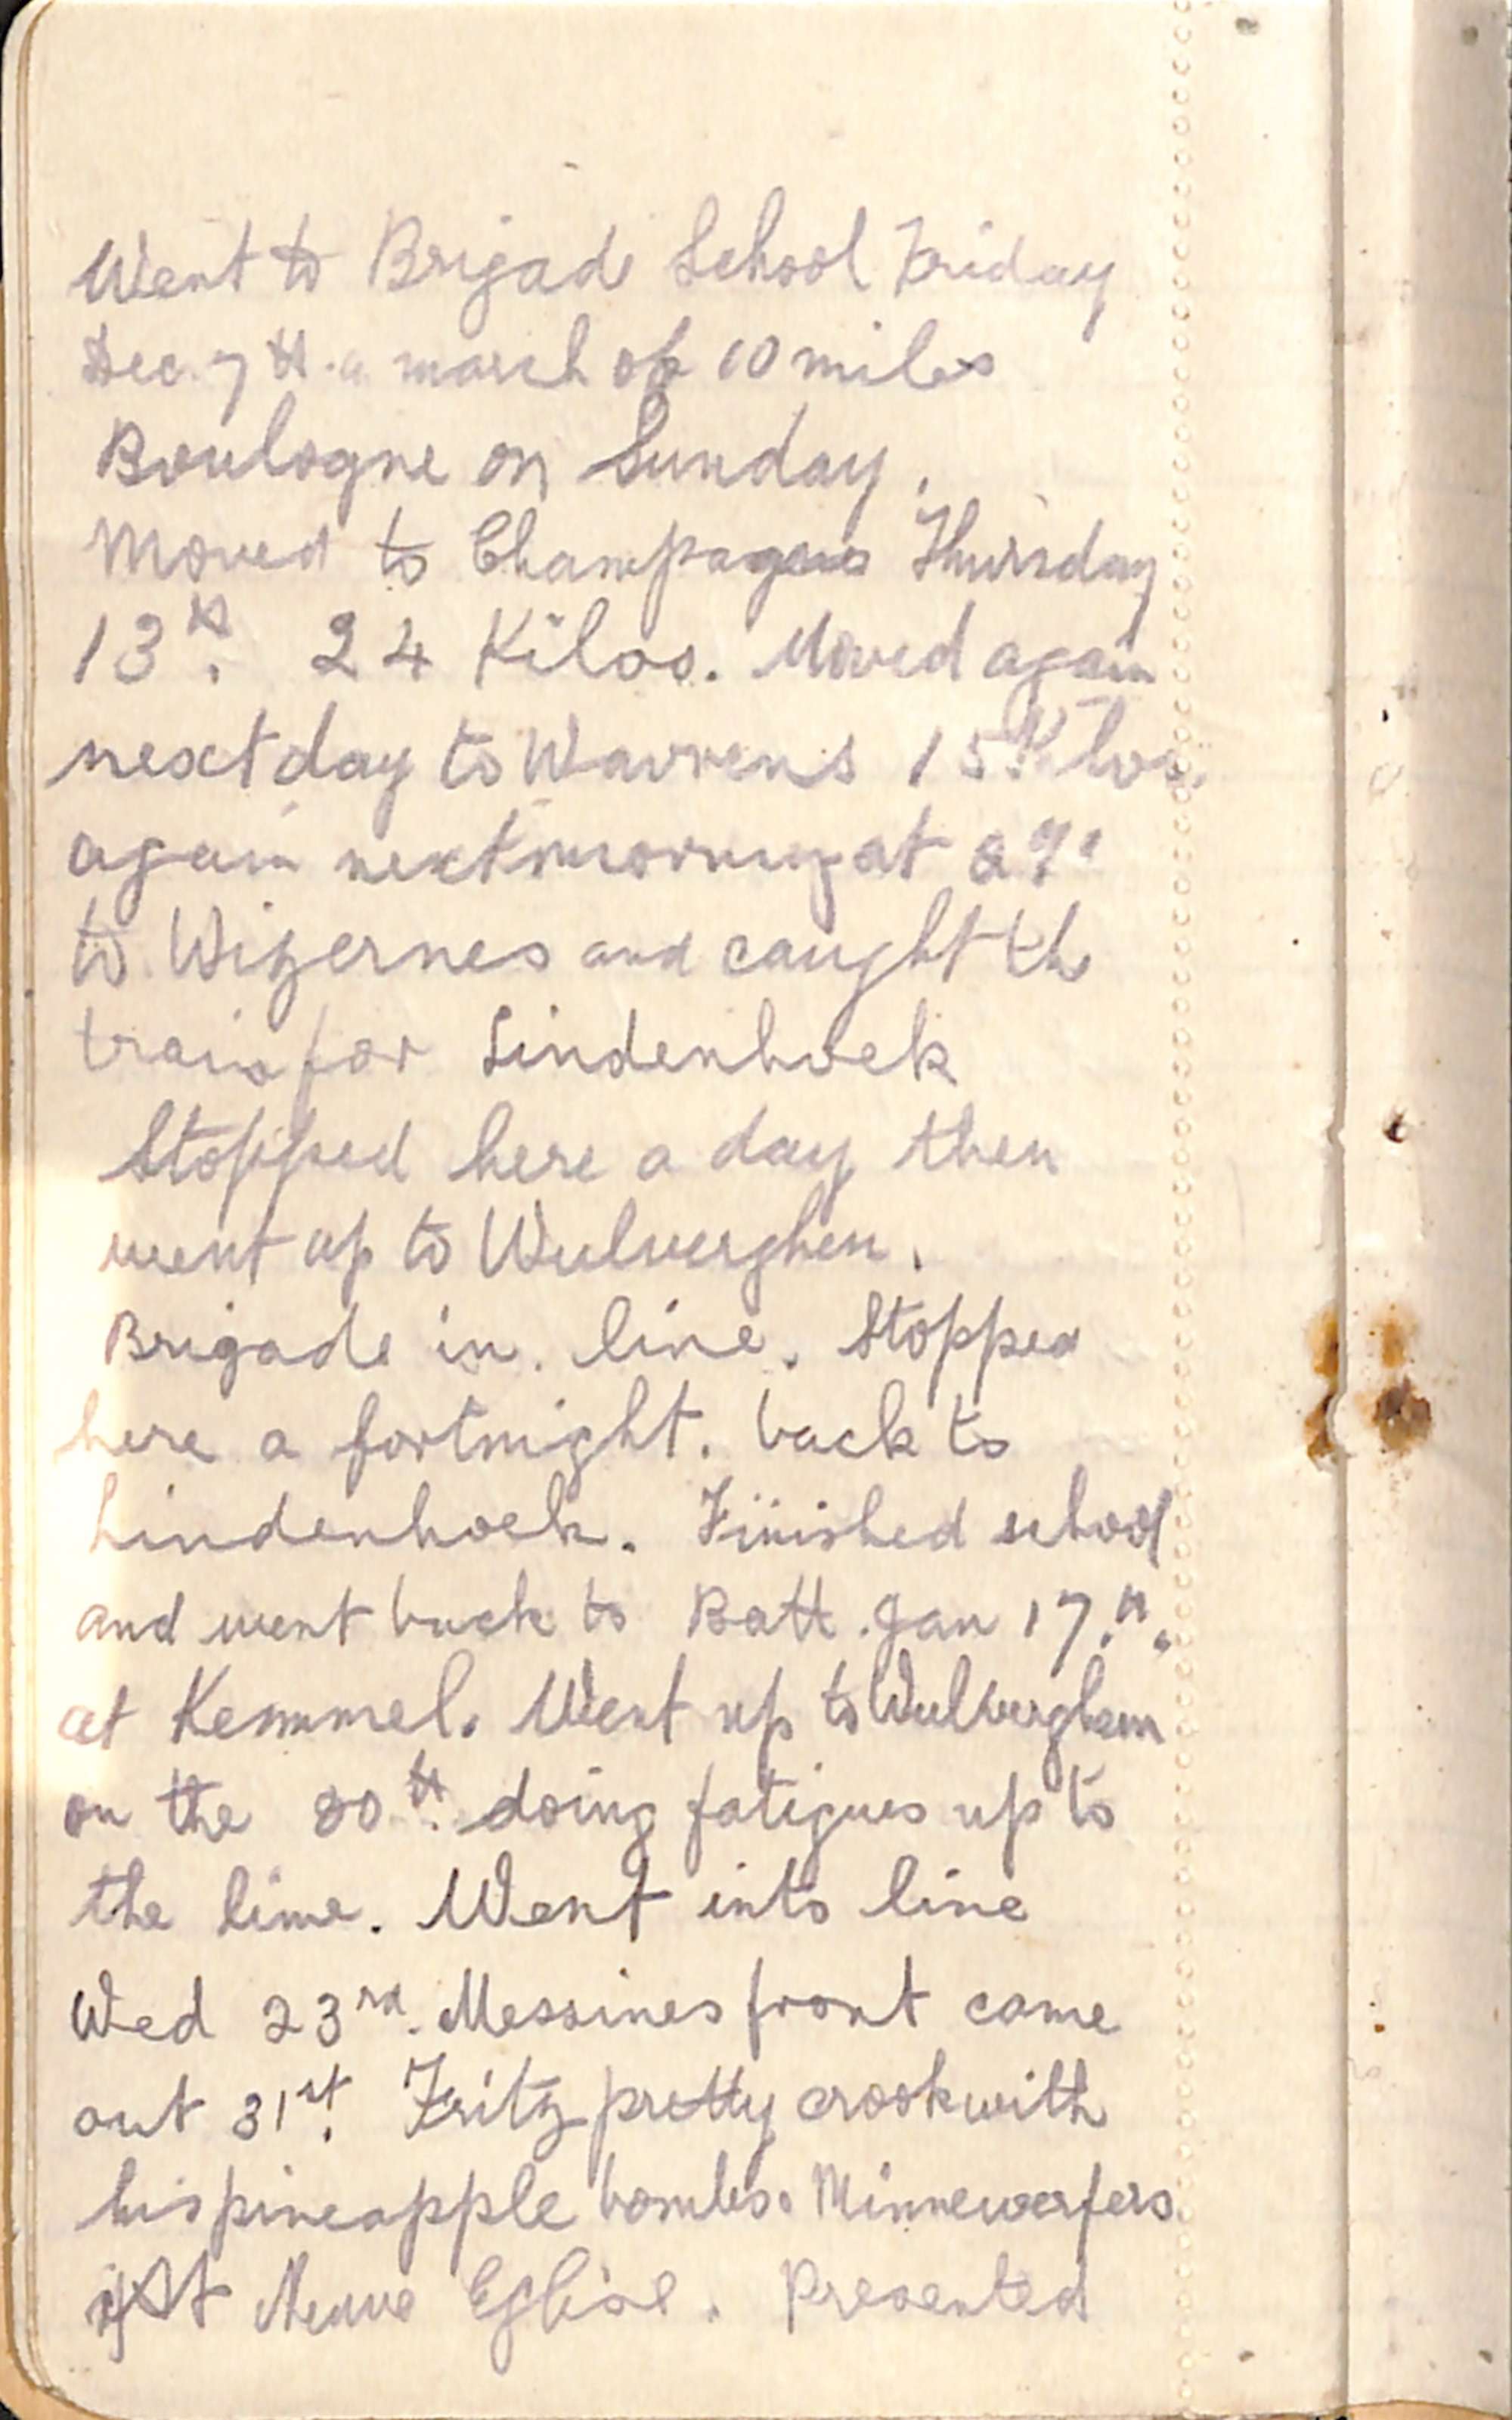 Went to Brigade School Friday
Dec. 7th. a march of 10 miles
Boulogne on Sunday.
Moved to Thursday
13th. 24 Kilos. Moved again
next day to Wavrens 15 Kilos.
again next morning at
to Wizernes and caught the
train for Lindenhoek
Stopped here a day then
went up to Wulverghen.
Brigade in. line. Stopped
here a fortnight. back to
Lindenhoek. Finished school
and went back to Batt. Jan 17.th.
at Kemmel. Went up to Wulverghem
on the 20th. doing fatigues up to
the line. Went into line
Wed 23rd. Messines front came
out 31st. Fritz pretty crook with
his pineapple bombs. Minnewerfers
At Neuve Eglise. Presented